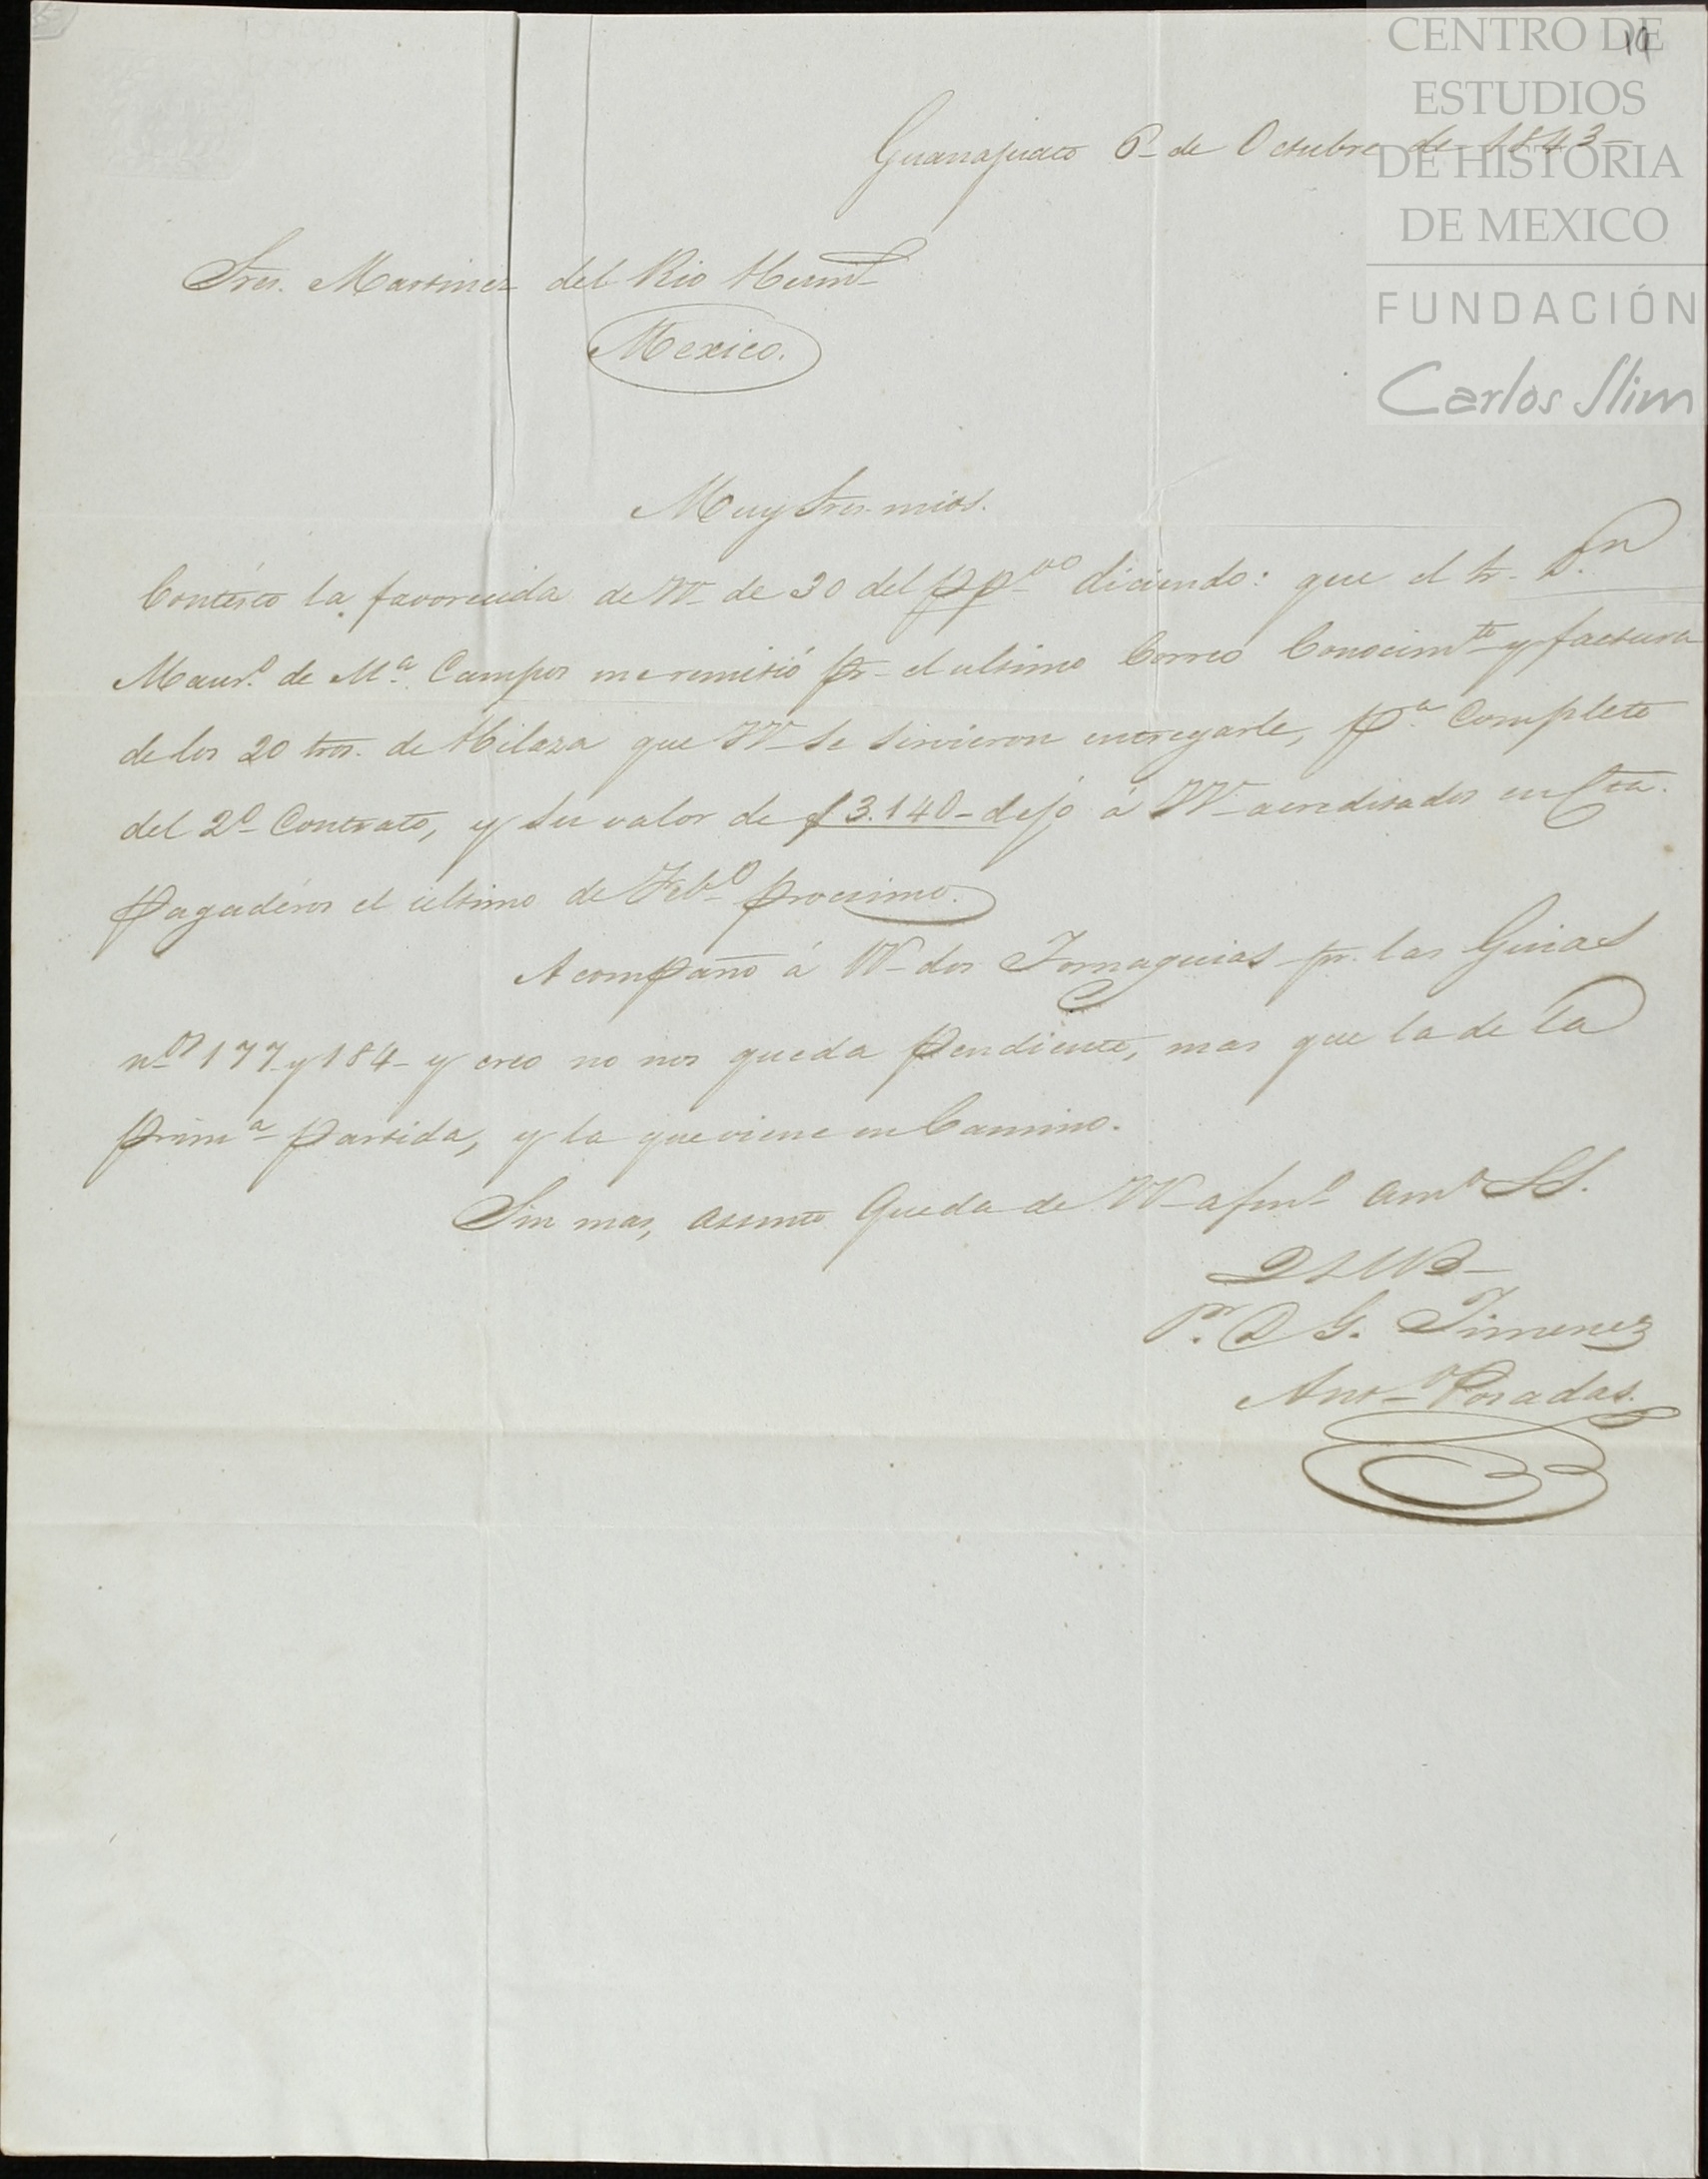 CENTRO DE
ESTUDIOS
DE HISTORIA
DE MEXICO
FUNDACIÓN
Carlos Slim
Guanajuato 6 de Octubre de 1843
Sres. Martinez del Rio Herms
Mexico.
Muy Sres. mios.
Contesto la favorecida de VV de 30 del pp.do diciendo: que el Sr. Dn
Maur.o de M.a Campos me remitió pr el ultimo Correo Conocimto y factura
de los 20 tros. de Hilaza que VV se sirvieron entregarle, pa. Completo
del 2o Contrato, y su valor de $3.140- dejo á VV acreditados en Cta.
Pagaderos el ultimo de Febo procsimo.
Acompaño á VV dos Tornaguias pr. las Guias
nos 177 y 184 y creo no nos queda Pendiente, mas que la de la
prima Partida, y la que viene en Camino.
Sin mas, asunto Queda de VV afmo amo SS.
QSMB
Pr. D G. Jimenez
Anto Posadas.